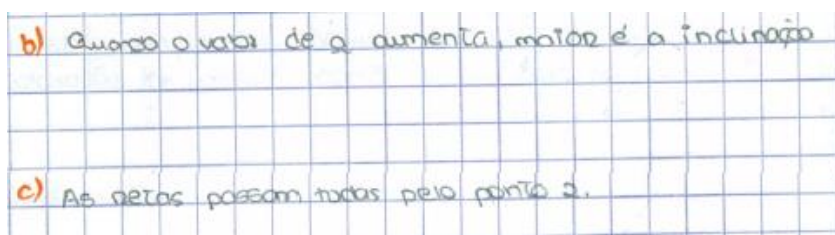 b) Quando o valor de a aumenta, maior é a inclinação
c) As retas passam todas pelo ponto 2.